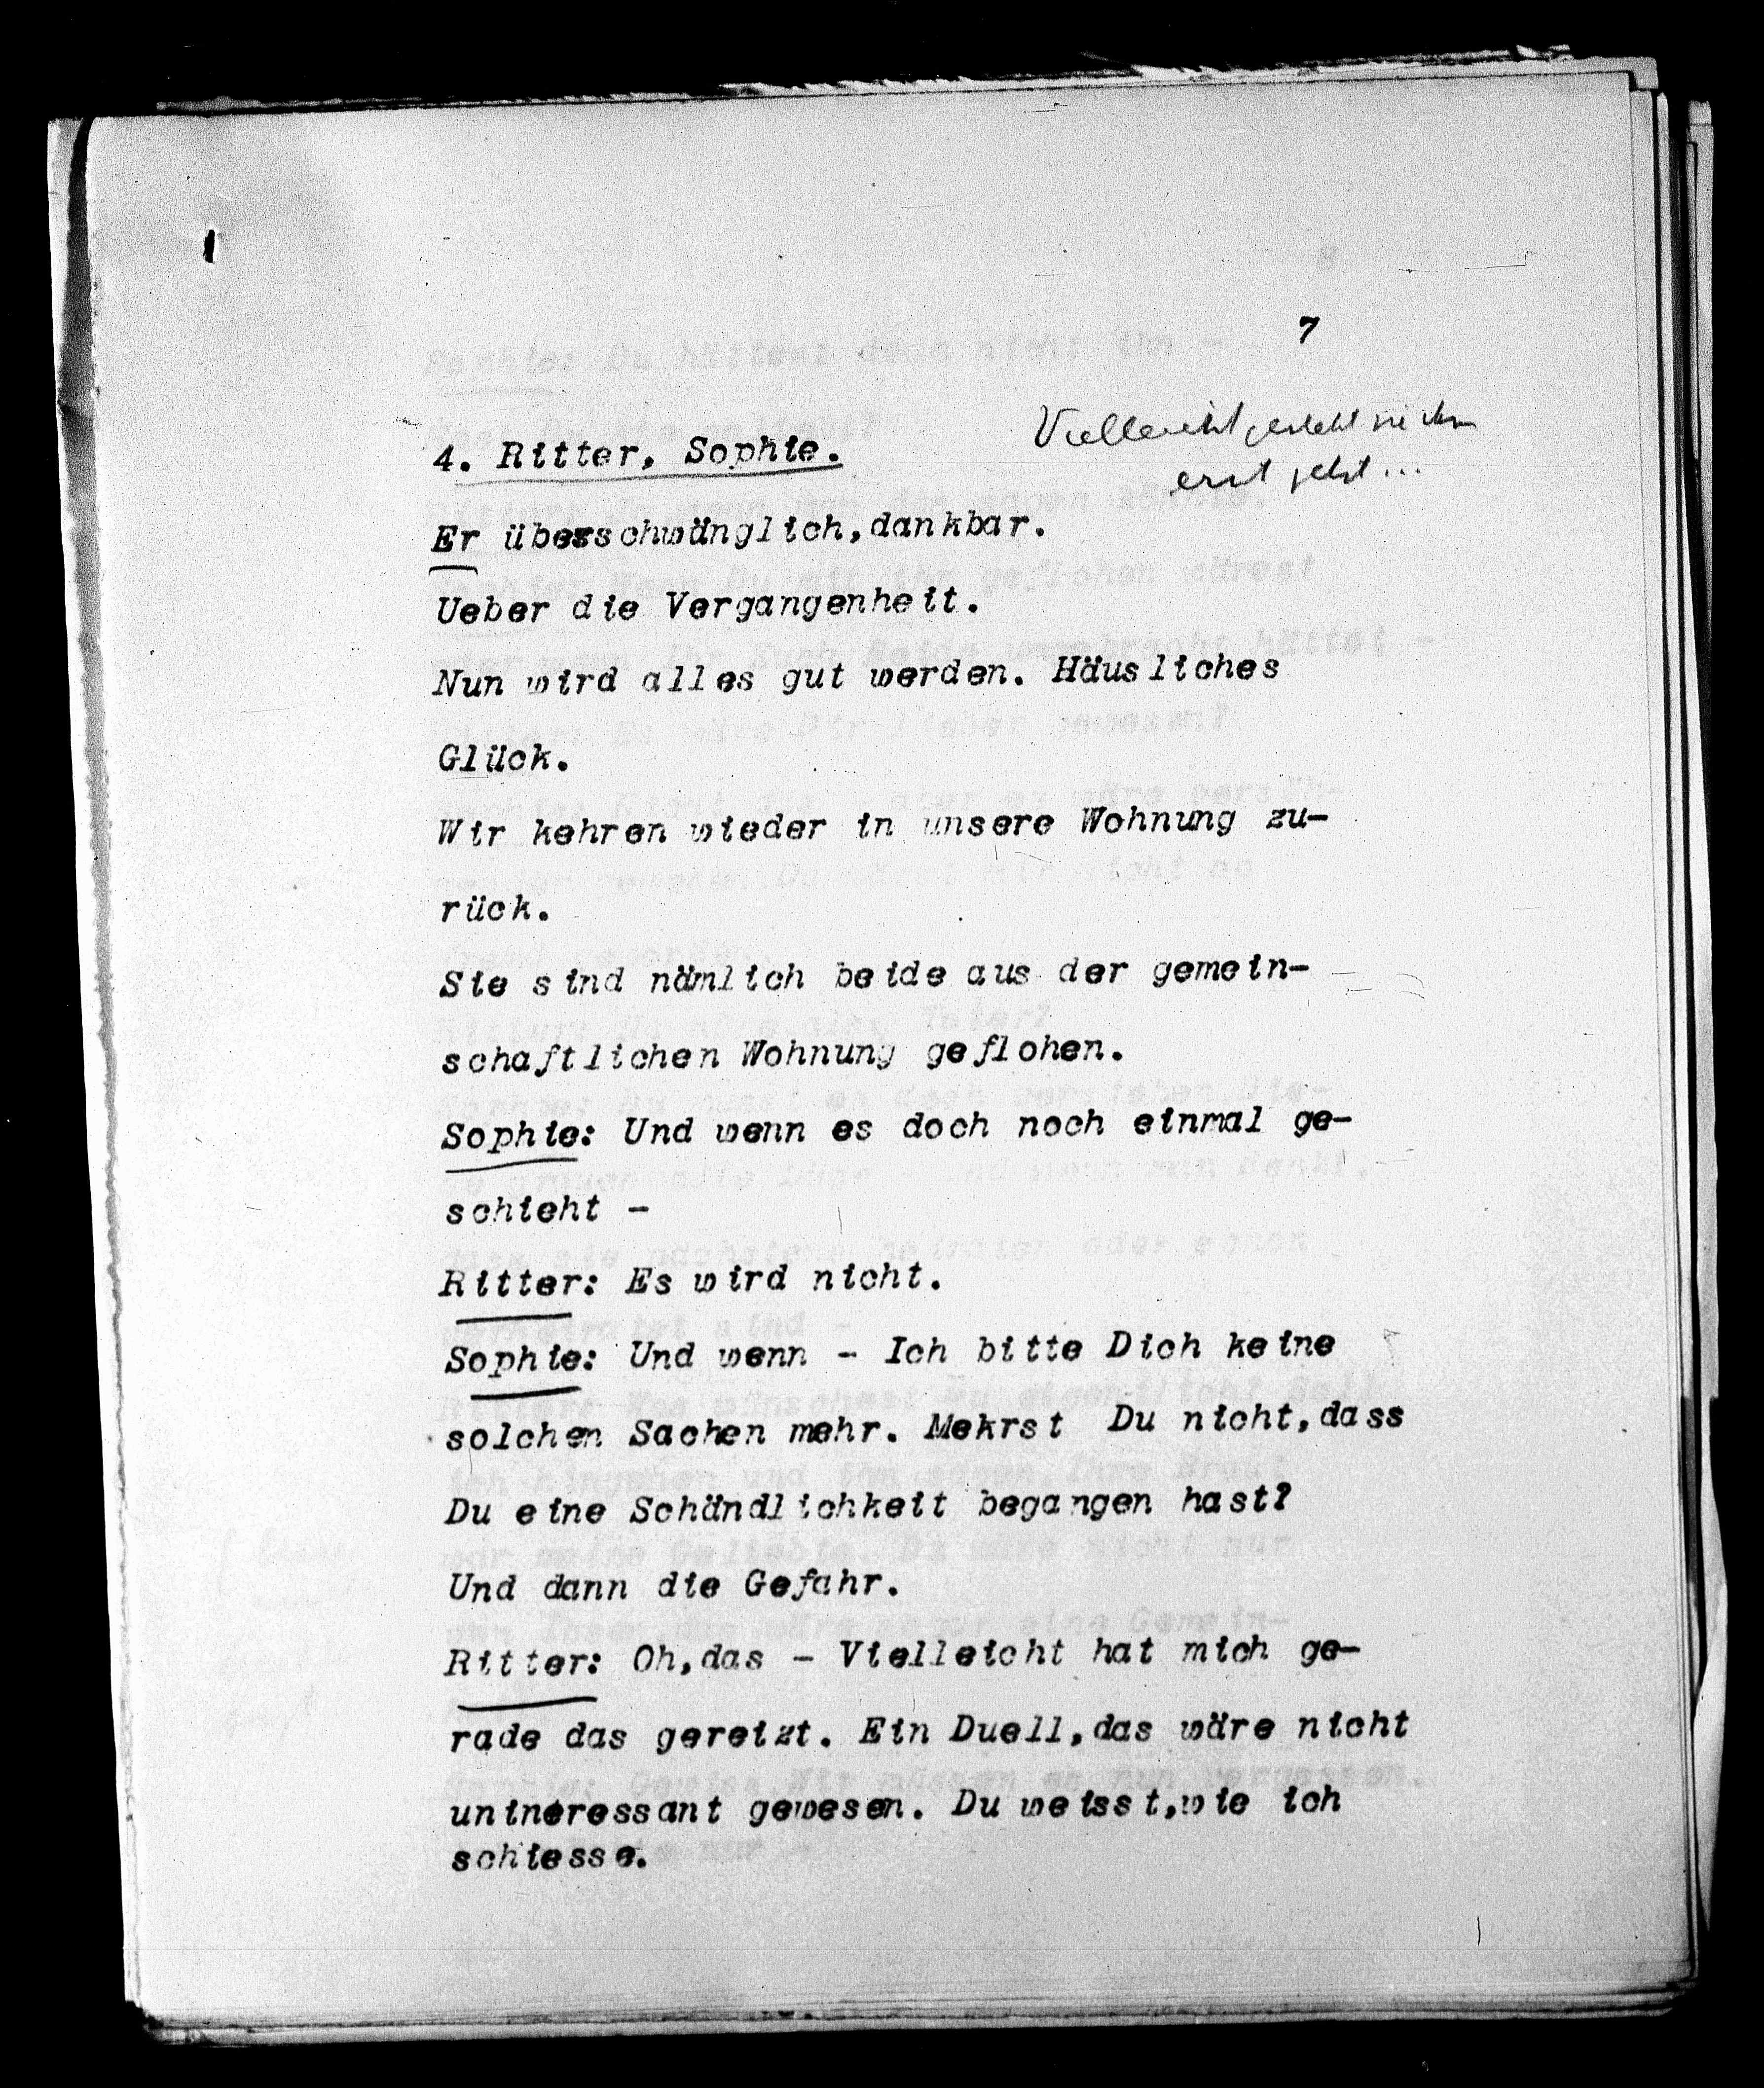 7
Vielleicht gesteht sie ihm
erst jetzt...
4. Ritter, Sophie.
Er überschwänglich,dankbar.
Ueber die Vergangenheit.
Nun wird alles gut werden. Häusliches
Glück.
Wir kehren wieder in unsere Wohnung zu-
rück.
Sie sind nämlich beide aus der gemein-
schaftlichen Wohnung geflohen.
Sophie: Und wenn es doch noch einmal ge-
schieht -
Ritter: Es wird nicht.
Sophie: Und wenn - Ich bitte Dich keine
solchen Sachen mehr. Mekrst Du nicht,dass
Du eine Schändlichkeit begangen hast?
Und dann die Gefahr.
Ritter: Oh,das - Vielleicht hat mich ge-
rade das gereizt. Ein Duell,das wäre nicht
unineressant gewesen. Du weisst,wie ich
schiesse.